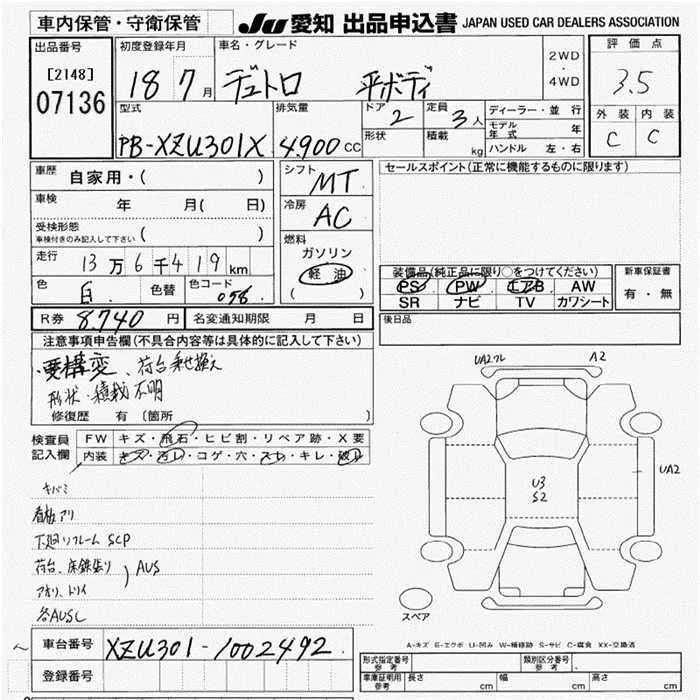 車内保管・守衛保管
JU 愛知 出品申込書 JAPAN USED CAR DEALERS ASSOCIATION
出品番号
[2148]
07136
初度登録年月
18 7月
車名・グレード
デュトロ 平ボディ
2WD
・
4WD
評価点
3.5
外装 内装
C C
型式
PB-XZU301X
排気量
4,900 CC
ドア 2
定員 3人
形状
積載 kg
ディーラー・並行
モデル年式 年
ハンドル 左・右
車歴 自家用・( )
車検 年 月( 日)
受検形態
車検付きのみ記入して下さい ( )
走行 13万6千419km
色 白 色替 色コード 058
R券 8,740円 名変通知期限 月 日
シフト
MT
冷房
AC
燃料
ガソリン
軽油
( )
セールスポイント(正常に機能するものに限ります)
装備品(純正品に限り○をつけてください)
PS PW エアB AW
SR ナビ TV カワシート
新車保証書
有・無
後日品
注意事項申告欄(不具合内容等は具体的に記入して下さい)
・要構変、荷台乗せ換え
形状・積載不明
修復歴 有 〔箇所 〕
検査員記入欄
FW キズ・飛石・ヒビ割・リペア跡・X要
内装 キズ・汚レ・コゲ・穴・スレ・キレ・破レ
キバミ
看板アリ
下廻リフレーム SCP
荷台、床鉄張り
アオリ、トリイ
AUS
各AUSC
UA2フレ A2
UA2
U3
S2
スペア
A-キズ E-エクボ U-凹み W-補修跡 S-サビ C-腐食 XX-交換済
車台番号 XZU301-1002492
登録番号
形式指定番号
参考
類別区分番号
参考
車庫証明用
参考
長さ cm 幅 cm 高さ cm